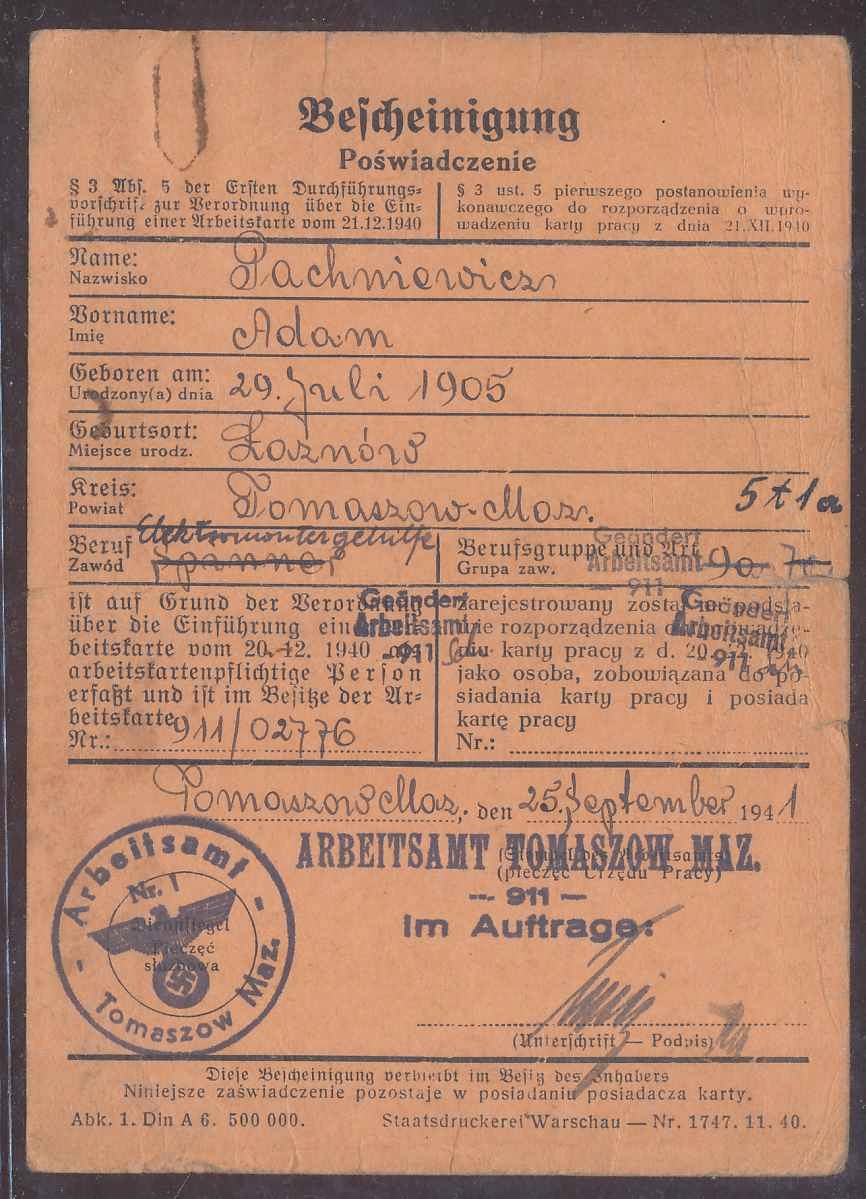 Bescheinigung
Poświadczenie
§ 3 Abs. 5 der Ersten Durchführungs=
vorschrift zur Verordnung über die Ein=
führung einer Arbeitskarte vom 21.12.1940
§ 3 ust. 5 pierwszego postanowienia wy-
konawczego do rozporządzenia o wpro-
wadzeniu karty pracy z dnia 21.XII.1940
Name: Pachniewicz
Nazwisko
Vorname: Adam
Imię
Geboren am: 29. Juli 1905
Urodzony(a) dnia
Geburtsort: Łaznów
Miejsce urodz.
Kreis: Tomaszow-Maz. 5t1a
Powiat
Elektromontergehilfe
Beruf Spanner
Zawód
Berufsgruppe und Art 9o 7a
Grupa zaw.
Geändert
Arbeitsamt
- 911
ist auf Grund der Verordnung
über die Einführung einer Ar=
beitskarte vom 20. 12. 1940 als
arbeitskartenpflichtige Person
erfaßt und ist im Besitze der Ar=
beitskarte
Nr.: 911/02776
Geändert
Arbeitsamt
- 911
zarejestrowany został na podsta-
wie rozporządzenia o wprowadze-
niu karty pracy z d. 20. 12. 1940
jako osoba, zobowiązana do po-
siadania karty pracy i posiada
kartę pracy
Nr.:
Geändert
Arbeitsamt
911
Tomaszow Maz, den 25. September 1941
ARBEITSAMT TOMASZOW MAZ.
(pieczęć Urzędu Pracy)
— 911 —
Im Auftrage:
Arbeitsamt
Nr. 1
Dienstsiegel
Pieczęć
służbowa
Tomaszow Maz.
(Unterschrift — Podpis)
Diese Bescheinigung verbleibt im Besitz des Inhabers
Niniejsze zaświadczenie pozostaje w posiadaniu posiadacza karty.
Abk. 1. Din A 6. 500 000. Staatsdruckerei Warschau — Nr. 1747. 11. 40.